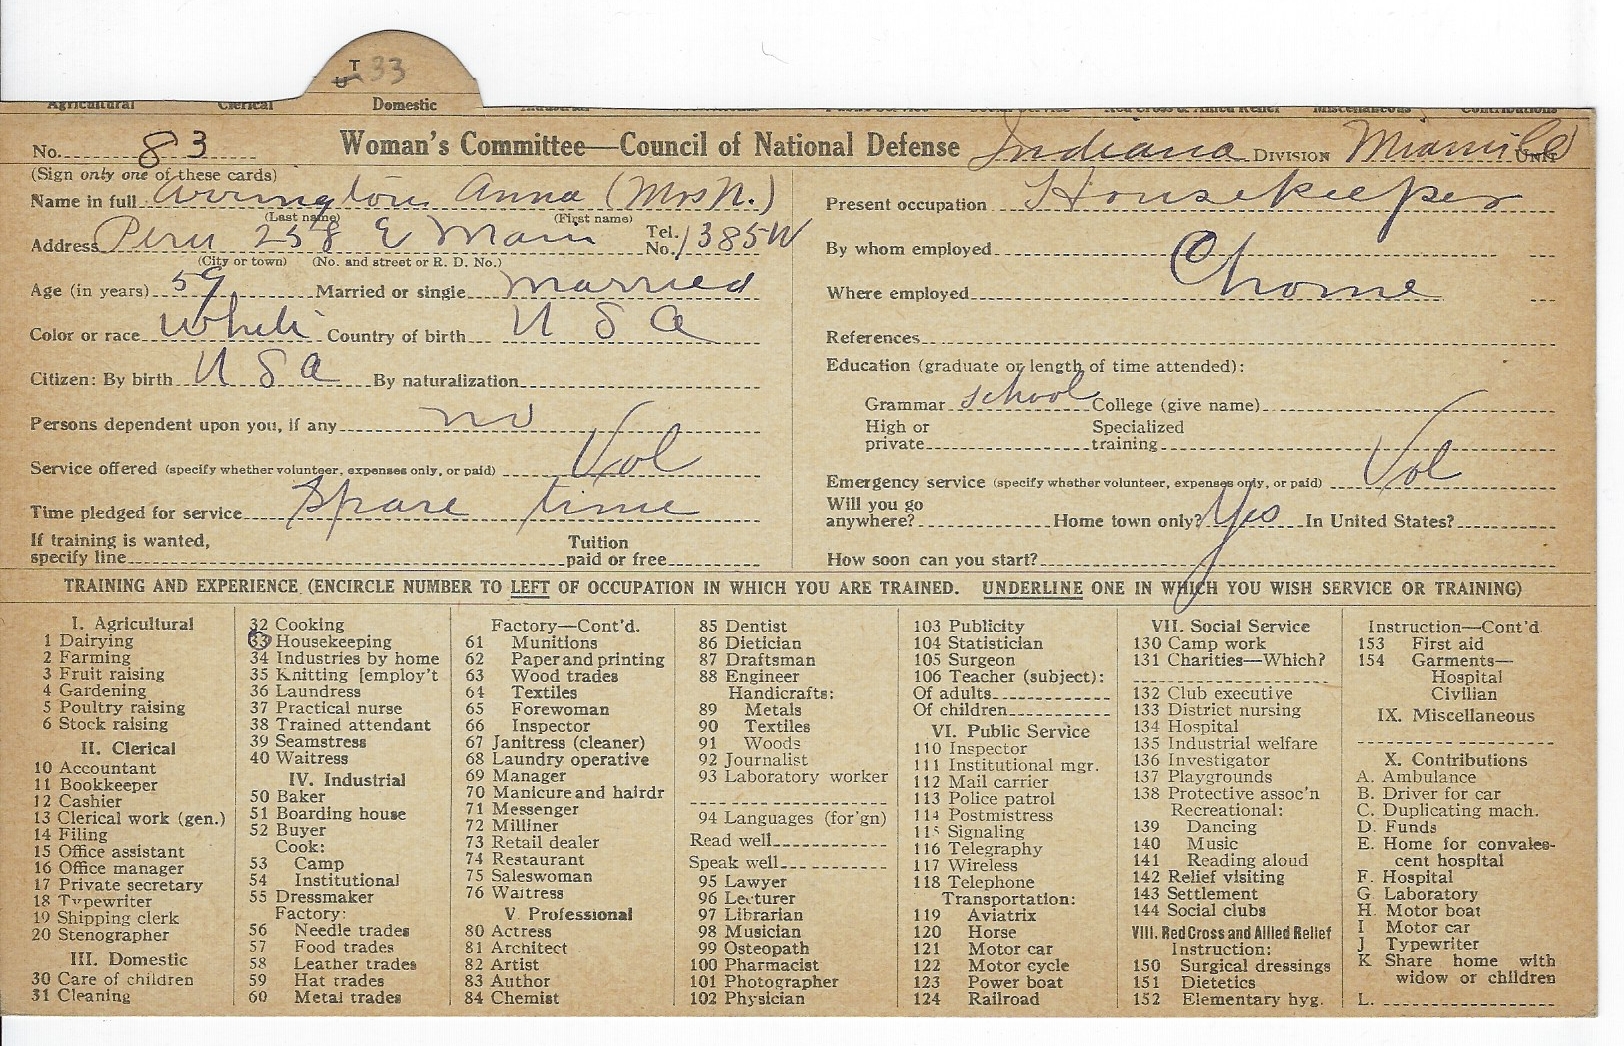 T 33
Agricultural Clerical Domestic Industrial Public Service Social Service Red Cross & Allied Relief Miscellaneous Contributions
No. 83 Woman's Committee—Council of National Defense Indiana DIVISION UNIT
(Sign only one of these cards)
Name in full Arrington Anna (Mrs N.)
(Last name) (First name)
Address Peru 258 E Main Tel. No. 1385W
(City or town) (No. and street or R. D. No.)
Age (in years) 59 Married or single married
Color or race white Country of birth U S A
Citizen: By birth U S A By naturalization
Persons dependent upon you, if any no
Service offered (specify whether volunteer, expenses only, or paid) Vol
Time pledged for service Spare time
If training is wanted, specify line Tuition paid or free
Present occupation Housekeeper
By whom employed
Where employed @home
References
Education (graduate or length of time attended):
Grammar school College (give name)
High or private Specialized training
Emergency service (specify whether volunteer, expenses only, or paid) Vol
Will you go anywhere? Home town only? Yes In United States?
How soon can you start?
TRAINING AND EXPERIENCE (ENCIRCLE NUMBER TO LEFT OF OCCUPATION IN WHICH YOU ARE TRAINED. UNDERLINE ONE IN WHICH YOU WISH SERVICE OR TRAINING)
I. Agricultural
1 Dairying
2 Farming
3 Fruit raising
4 Gardening
5 Poultry raising
6 Stock raising
II. Clerical
10 Accountant
11 Bookkeeper
12 Cashier
13 Clerical work (gen.)
14 Filing
15 Office assistant
16 Office manager
17 Private secretary
18 Typewriter
19 Shipping clerk
20 Stenographer
III. Domestic
30 Care of children
31 Cleaning
32 Cooking
33 Housekeeping
34 Industries by home
35 Knitting [employ't
36 Laundress
37 Practical nurse
38 Trained attendant
39 Seamstress
40 Waitress
IV. Industrial
50 Baker
51 Boarding house
52 Buyer
Cook:
53 Camp
54 Institutional
55 Dressmaker
Factory:
56 Needle trades
57 Food trades
58 Leather trades
59 Hat trades
60 Metal trades
Factory—Cont'd.
61 Munitions
62 Paper and printing
63 Wood trades
64 Textiles
65 Forewoman
66 Inspector
67 Janitress (cleaner)
68 Laundry operative
69 Manager
70 Manicure and hairdr
71 Messenger
72 Milliner
73 Retail dealer
74 Restaurant
75 Saleswoman
76 Waitress
V. Professional
80 Actress
81 Architect
82 Artist
83 Author
84 Chemist
85 Dentist
86 Dietician
87 Draftsman
88 Engineer
Handicrafts:
89 Metals
90 Textiles
91 Woods
92 Journalist
93 Laboratory worker
94 Languages (for'gn)
Read well
Speak well
95 Lawyer
96 Lecturer
97 Librarian
98 Musician
99 Osteopath
100 Pharmacist
101 Photographer
102 Physician
103 Publicity
104 Statistician
105 Surgeon
106 Teacher (subject):
Of adults
Of children
VI. Public Service
110 Inspector
111 Institutional mgr.
112 Mail carrier
113 Police patrol
114 Postmistress
115 Signaling
116 Telegraphy
117 Wireless
118 Telephone
Transportation:
119 Aviatrix
120 Horse
121 Motor car
122 Motor cycle
123 Power boat
124 Railroad
VII. Social Service
130 Camp work
131 Charities—Which?
132 Club executive
133 District nursing
134 Hospital
135 Industrial welfare
136 Investigator
137 Playgrounds
138 Protective assoc'n
Recreational:
139 Dancing
140 Music
141 Reading aloud
142 Relief visiting
143 Settlement
144 Social clubs
VIII. Red Cross and Allied Relief
Instruction:
150 Surgical dressings
151 Dietetics
152 Elementary hyg.
Instruction—Cont'd
153 First aid
154 Garments—
Hospital
Civilian
IX. Miscellaneous
X. Contributions
A. Ambulance
B. Driver for car
C. Duplicating mach.
D. Funds
E. Home for convales-
cent hospital
F. Hospital
G. Laboratory
H. Motor boat
I Motor car
J Typewriter
K Share home with
widow or children
L.